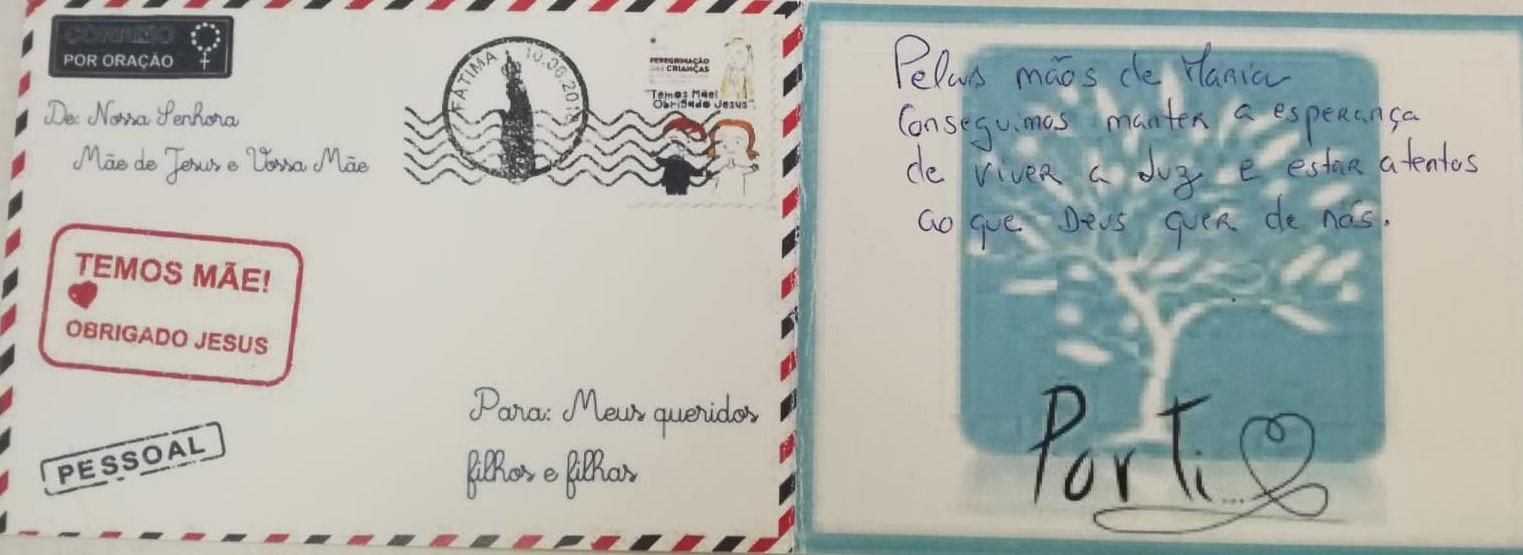 CORREIO
POR ORAÇÃO
De: Nossa Senhora
Mãe de Jesus e Vossa Mãe
FÁTIMA
10.06.201
PEREGRINAÇÃO
DAS CRIANÇAS
"Temos Mãe!
Obrigado Jesus"
TEMOS MÃE!
OBRIGADO JESUS
PESSOAL
Para: Meus queridos
filhos e filhas
Pelas mãos de Maria
conseguimos manter a esperança
de viver a luz e estar atentos
ao que Deus quer de nós.
Por Ti...